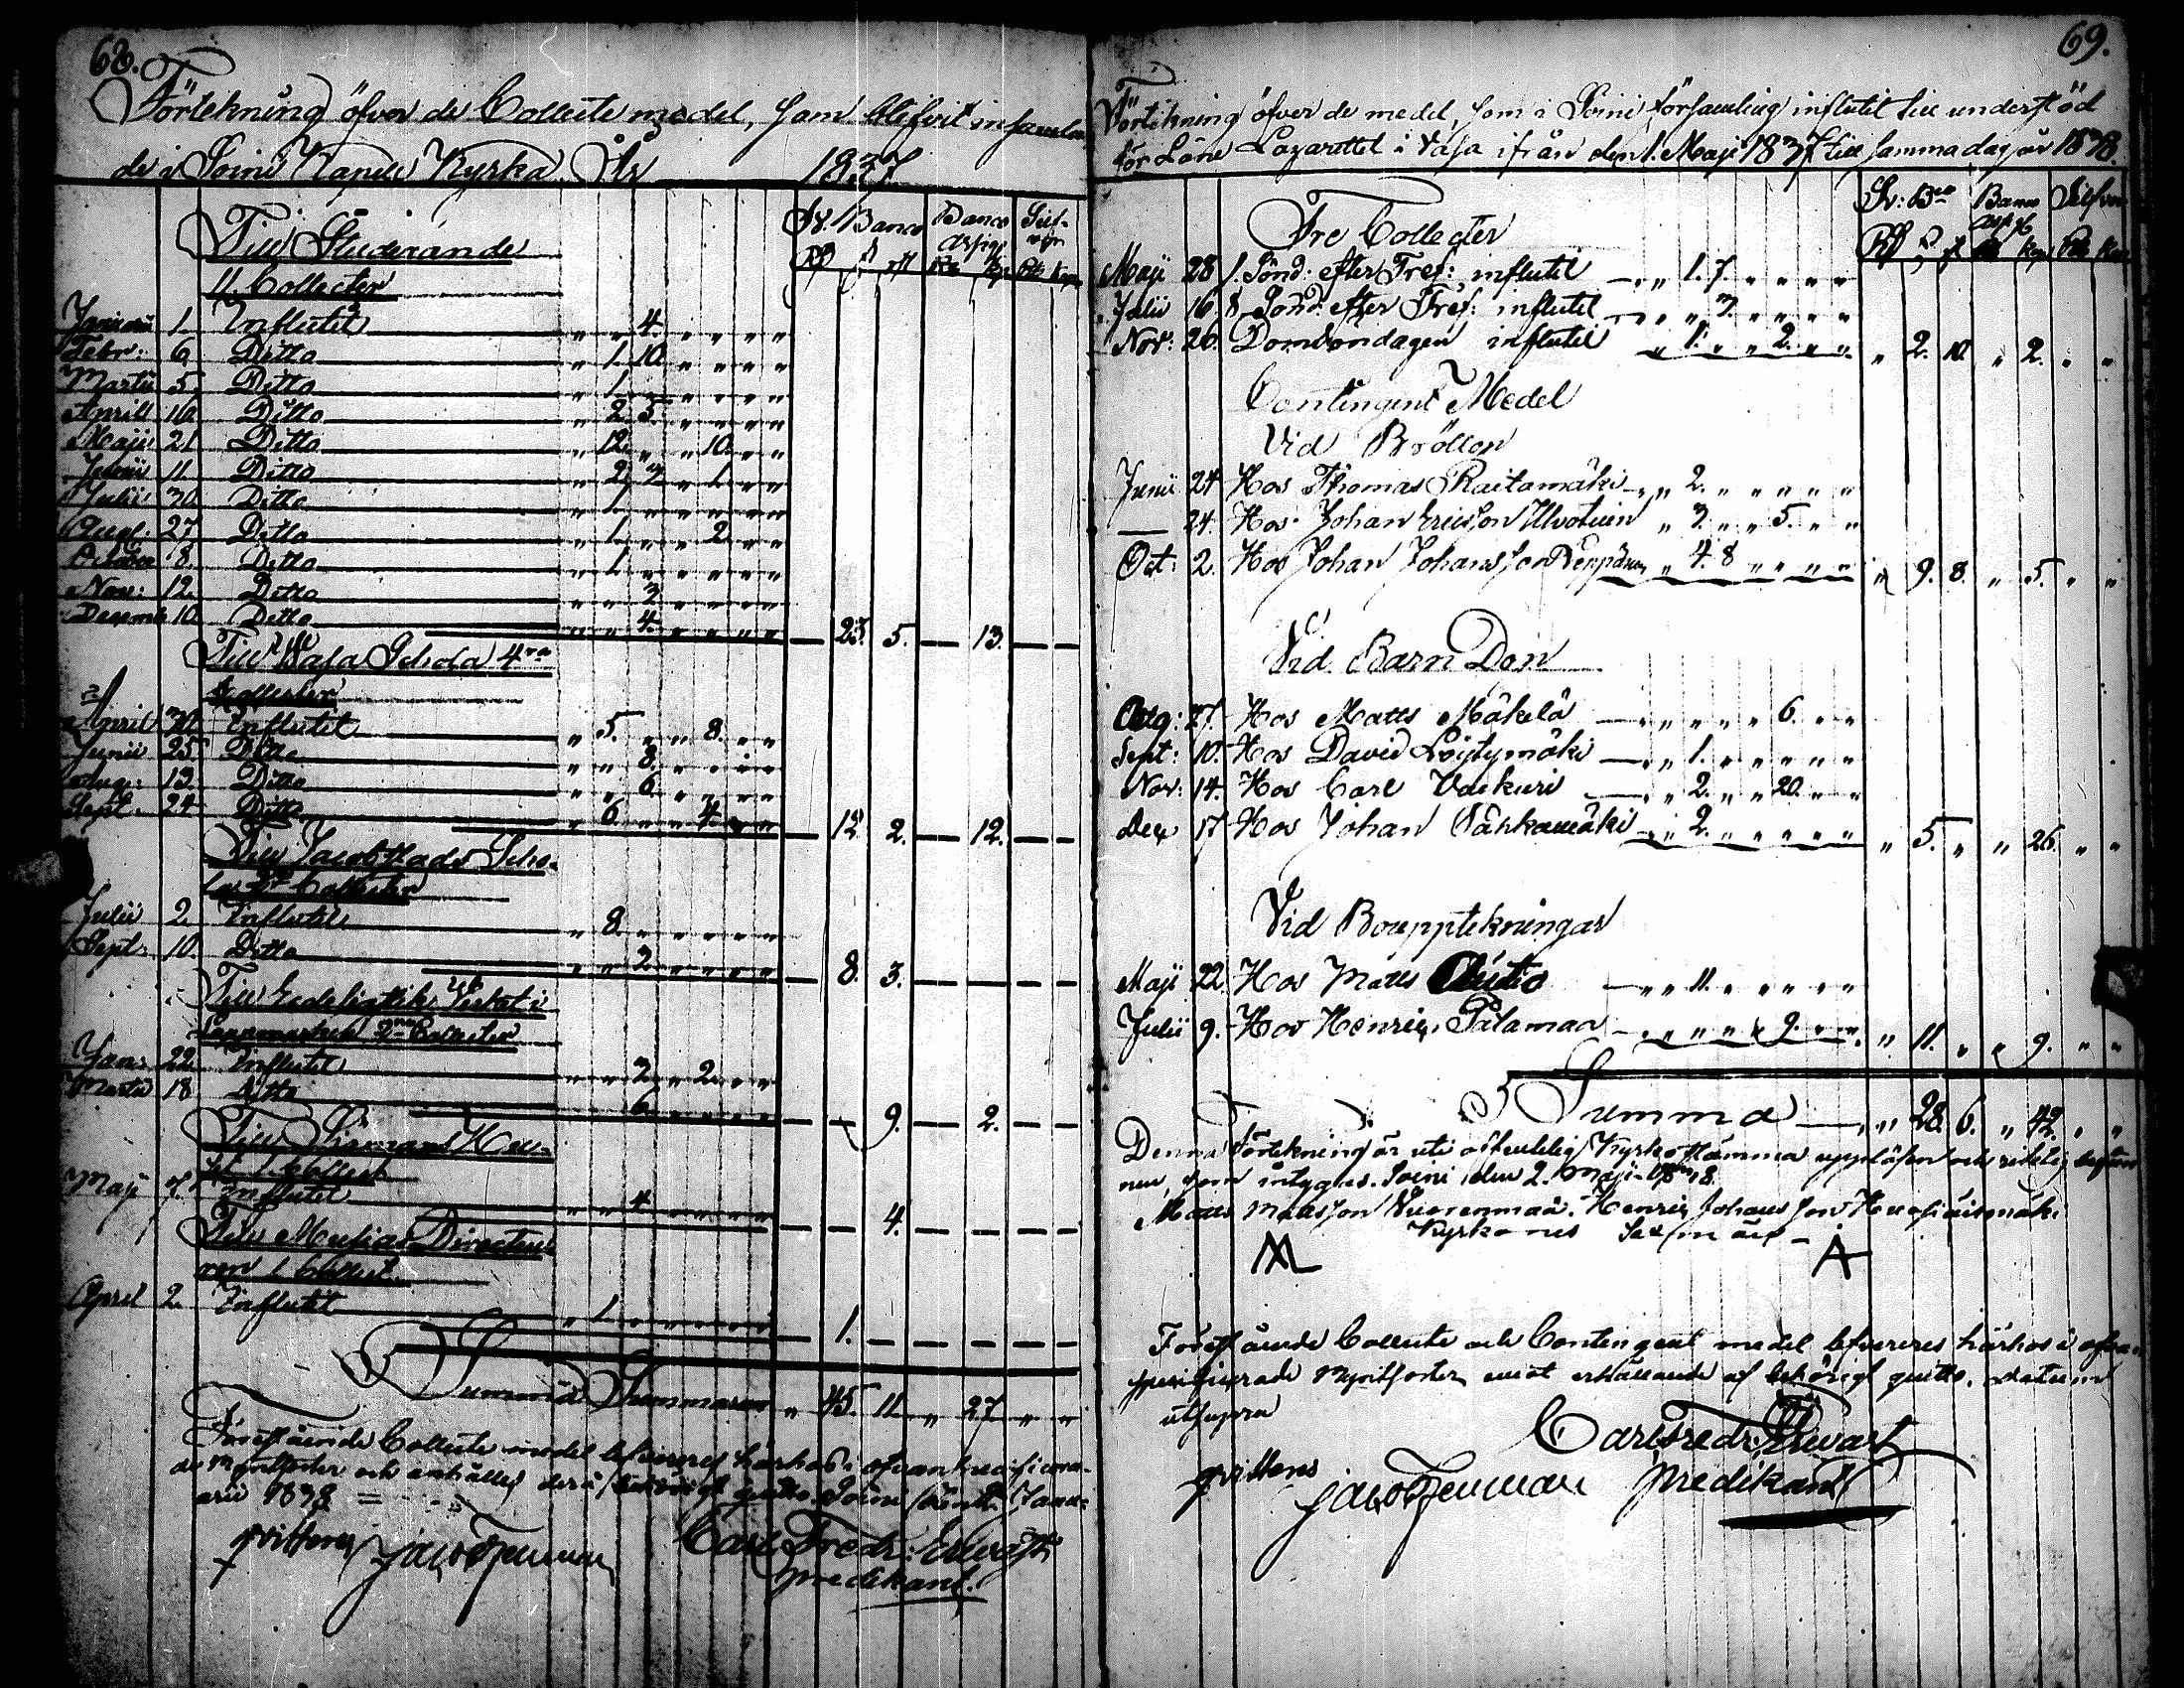 68.
Förtekning öfver de Collecte medel, som blifvit insamla
de i Soini Kapell Kyrka År 1837.
Sv. Banco Banco Assig. Silf-
Rd s rst Ro kop Ro kop
Till Studerande
11 Collecter
Januarii 1. Influtit " " 4. " " " " "
Febr: 6 Ditto " 1. 10. " " " " "
Martii 5. Ditto " 1. " " " " " "
Aprill 16 Ditto " 2. 5. " " " " "
Maji 21 Ditto " 12. " " 10. " "
Junii 11. Ditto " 2. 3. " 1. " "
Julii 30. Ditto " 1. " " " " " "
Aug: 27 Ditto " 1. " " 2. " "
October 8. Ditto " 1. " " " " " "
Nov: 12. Ditto " " 3. " " " " "
Decemb 10. Ditto " " 4. " " " " " — 23. 5. — 13. — —
Till Wasa Schola 4ra
Collecter
April 30. Influtit " 5. " " 8. " "
Junii 25 Ditto " " 8. " " " "
Aug: 13. Ditto " " 6. " " " "
Sept. 24 Ditto " 6. " " 4. " " — 12. 2. — 12. — —
Till Jacobstads Scho-
la 2ne Collecter
Julii 2. Influtit " 8. " " " " " "
Sept: 10. Ditto " " 3. " " " " " — 8. 3. — — — —
Till
Lappmarken 2ne Collecter
Jan: 22. Influtit " " 3. " 2. " "
Martii 18 Ditto " " 6. " " " " — — 9. — 2. — —
Till
1. Collect
Maji 7. Influtit " " 4. " " " " — — 4. — — — —
Till Musices Directeu-
ren 1 Collect
April 2. Influtit " 1. " " " " " — 1. — — — — —
Summa Summarum " 45. 11. " 27 " "
Förestående Collecte medel lefvereres härhos i ofvanspecificera-
de Myntsorter och anhålles derå behörigt quitto. Soini den Janu-
arii 1838
qvitteras
Carl Fredr:
predikant.
69.
Förtekning öfver de medel, som i Soini församling influtit till understöd
för Läne Lazarettet i Vasa ifrån den 1. Maji 1837 till samma dag år 1838.
Sv: Bco Banco Assig Silfver
Rd s rst Ro kop Ro kop
Tre Collecter
Maji 28 1. Sönd: efter Tref: influtit " 1. 7. " " " " "
Julii 16. 8. Sönd. efter Tref: influtit " " 3. " " " " "
Nov: 26. Domsöndagen influtit " 1. " " 2. " " " 2. 10. " 2. " "
Contingent Medel
Vid Bröllop
Junii 24 Hos Thomas Raitamäki " 2. " " " " " "
— 24. Hos Johan Ericsson Ulvotuin " 3. " " 5. " "
Oct: 2. Hos Johan Johansson Reppänen " 4. 8 " " " " " 9. 8. " 5. " "
Vid Barn Dop
Aug: 27. Hos Matts Mäkelä " " " " 6. " "
Sept: 10. Hos David Löytymäki " 1. " " " " " "
Nov: 14. Hos Carl Vdekuri " 2. " " 20. " "
Dec 17 Hos Johan Sähkamäki " 2. " " " " " " 5. " " 26. " "
Vid Bouppteckningar
Maji 22. Hos Matts Autio " 11. " " " " " "
Julii 9. Hos Henric Palamaa " " " " 9. " " " 11. " " 9. " "
Summa " 28. 6. " 42. " "
Denna Förtekning är uti offentelig Kyrkostämma uppläsen och riktig befun-
nen, som intygas. Soini den 2. Maji 1838.
Matts Mattsson Vuorenmaa. Henric Johansson
Kyrkones Sexmän
M A
Förestående Collecte och Contingent medel lefvereres härhos i ofvan-
specificerade Myntsorter emot erhållande af behörigt quitto. Datum
utsupra
Carl Fredr:
predikant
qvitteras